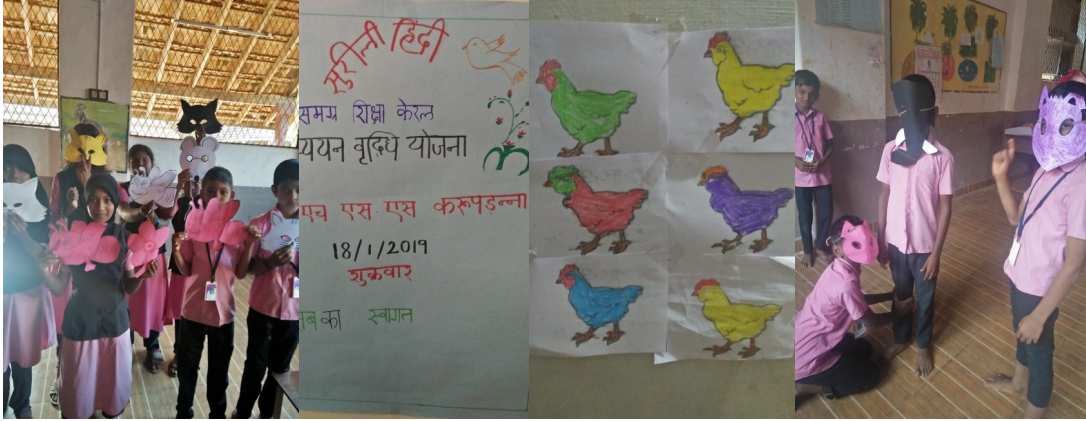 सुरीली हिंदी
समग्र शिक्षा केरल
ययन वृद्धि योजना
एच एस. एस करूपड़न्ना
18/1/2019
शुक्रवार
का स्वागत